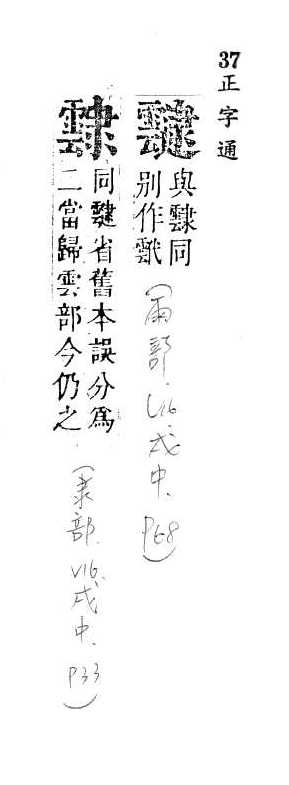 37 正字通
靆
與同
別作
（雨部、V16、戌中、P68）
同靆省舊本誤分爲
二當歸雲部今仍之
（隶部、V16、戌中、P33）